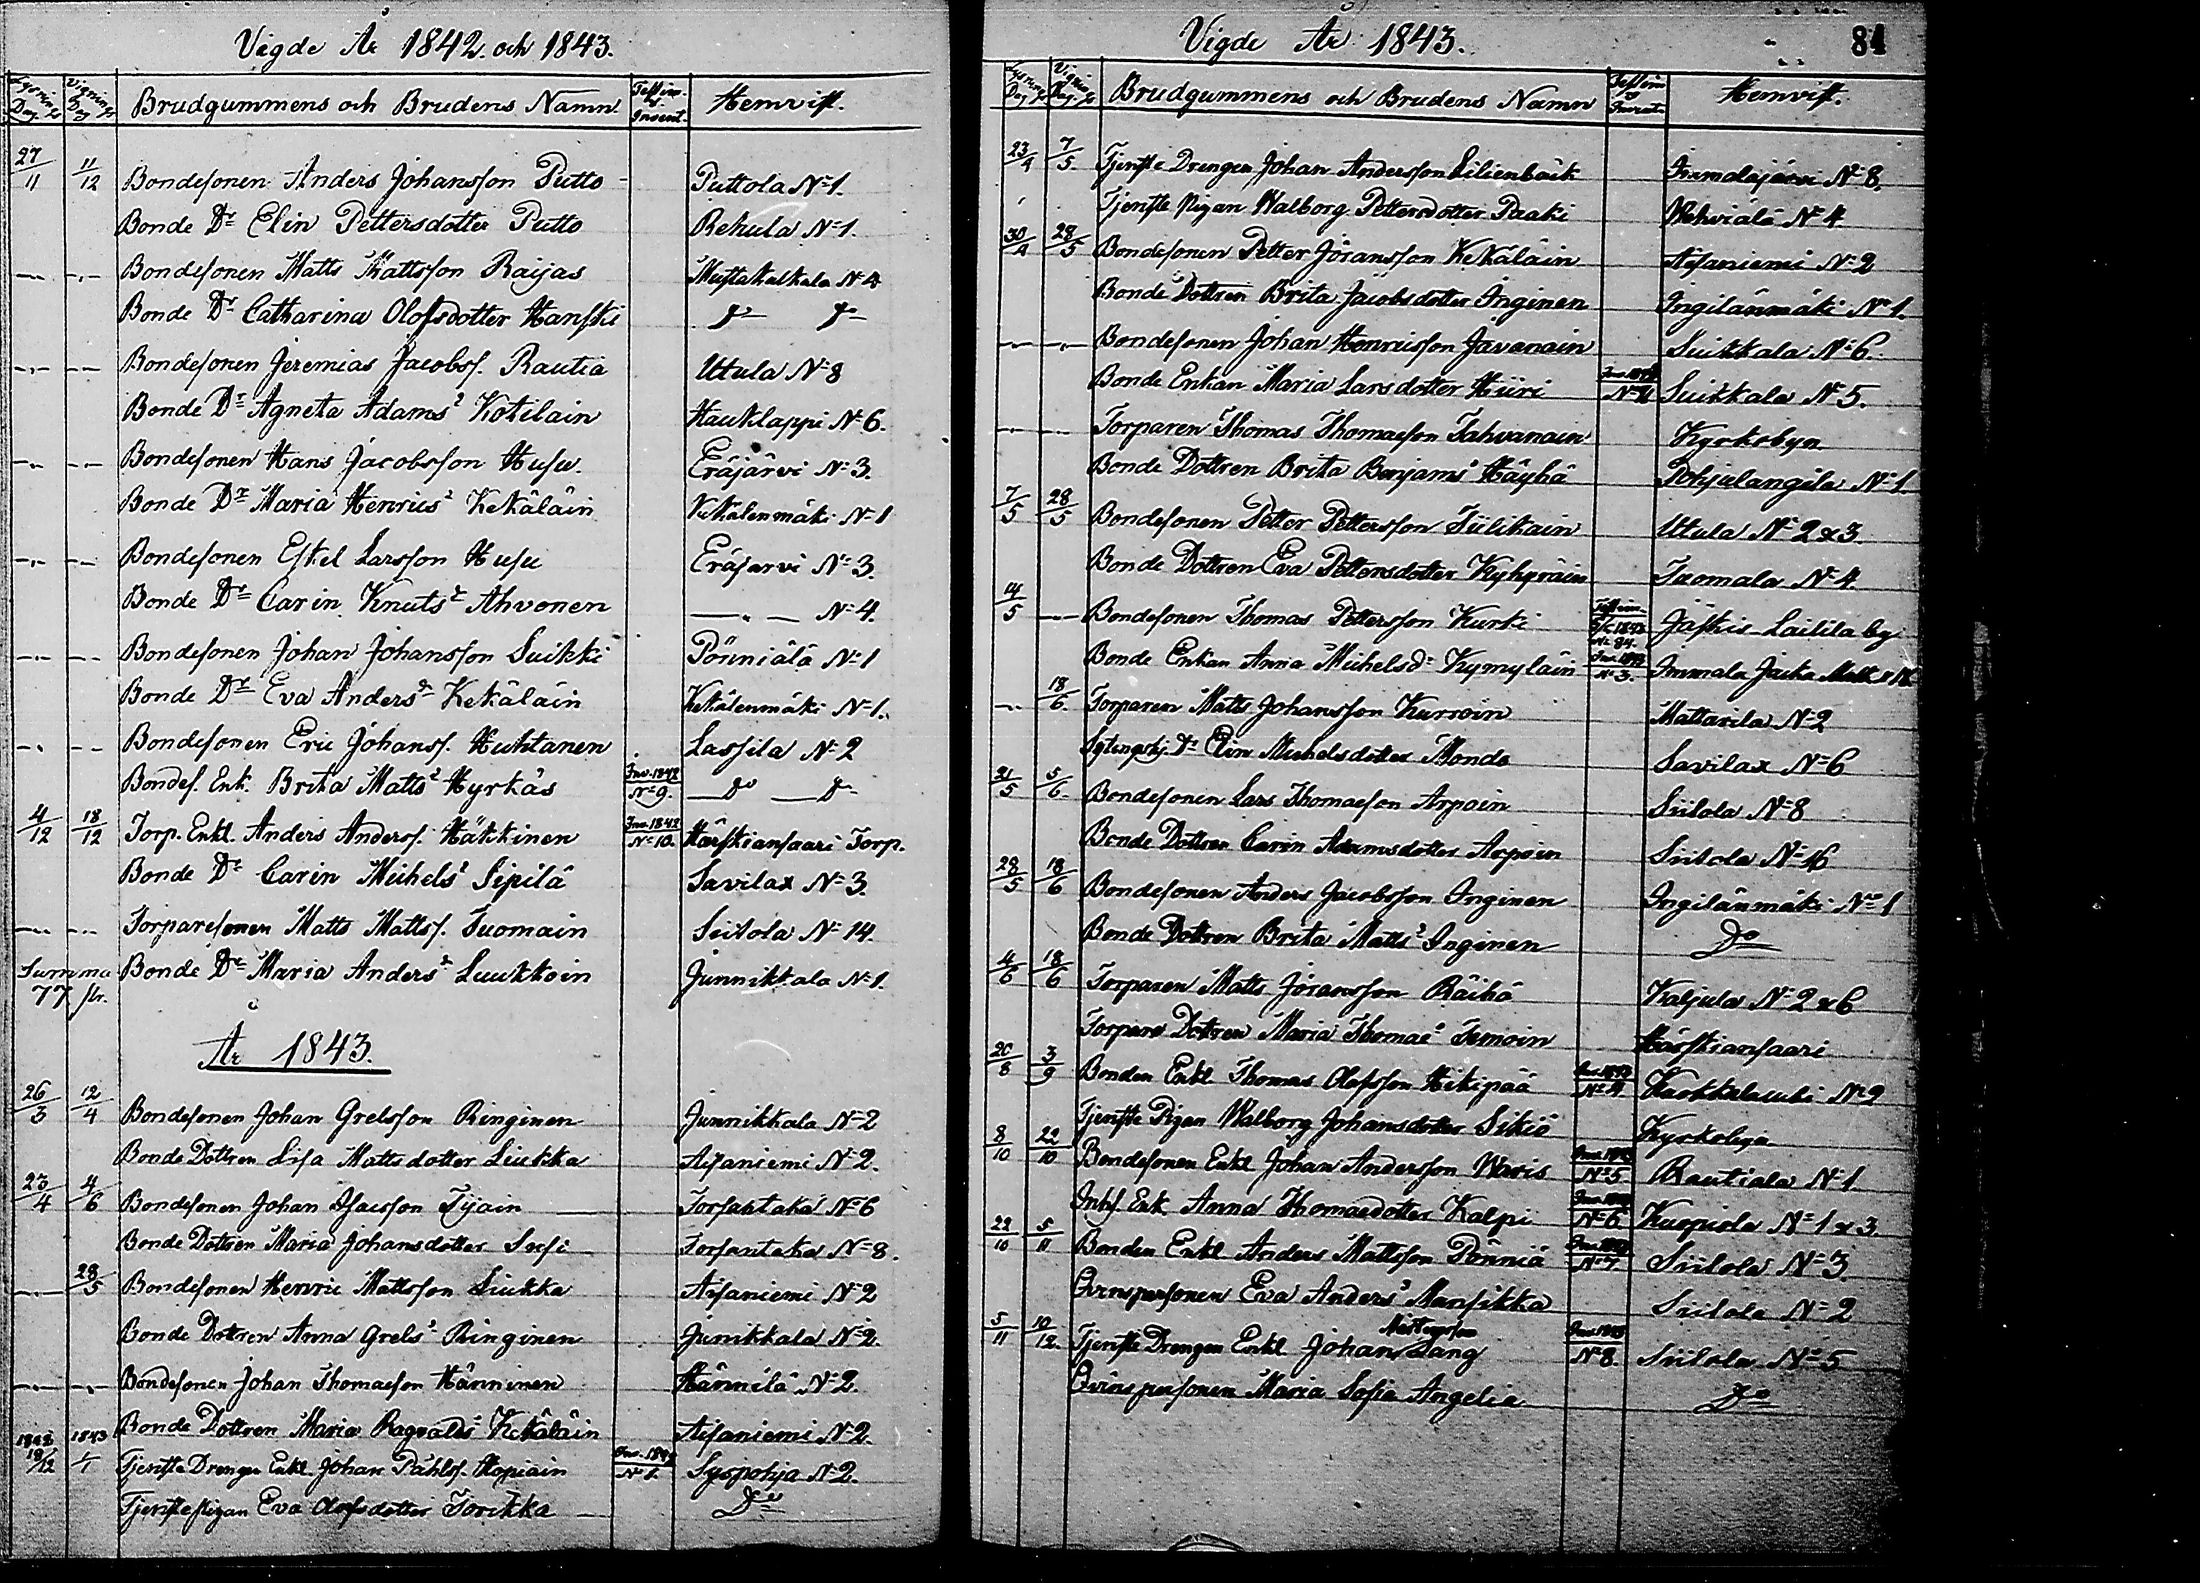 Vigde År 1842 och 1843.
Lysnings Dag Vignings Dag Brudgummens och Brudens Namn Testim. Invent. Hemvist.
27/11 11/12 Bondesonen Anders Johansson Putto Puttola N:1.
Bonde D:r Elin Pettersdotter Putto Rehula N:1.
Bondesonen Matts Mattsson Raijas Mustakalkala N:4
Bonde D:r Catharina Olofsdotter Hanski D:o D:o
Bondesonen Jeremias Jacobss. Rautia Utula N:8
Bonde D:r Agneta Adams:r Kotilain Hauklappi N:6.
Bondesonen Hans Jacobsson Husu. Eräjärvi N:3.
Bonde D:r Maria Henrics:r Kekäläin Kekälenmäki N:1
Bondesonen Eskel Larsson Husu Eräjarvi N:3.
Bonde D:r Carin Knuts:r Ahvonen — N:4.
Bondesonen Johan Johansson Suikki Pönniälä N:1
Bonde D:r Eva Anders:r Kekäläin Kekälenmäki N:1.
Bondesonen Eric Johanss. Huhtanen Lassila N:2
Bondes. Enk. Brita Matts:r Hyrkäs Inv. 1842 N:9. D:o D:o
4/12 18/12 Torp. Enkl. Anders Anderss. Häkkinen Inv. 1842 N:10. Härskiansaari Torp.
Bonde D:r Carin Michels:r Sipilä Savilax N:3.
Torparesonen Matts Mattss. Tuomain Siitola N:14.
Summa Bonde D:r Maria Anders:r Luukkoin Junnikkala N:1.
77 st.
År 1843.
26/3 12/4 Bondesonen Johan Grelsson Ringinen Junnikkala N:2
Bonde Dottren Lisa Mattsdotter Liukka Aisaniemi N:2.
23/4 4/6 Bondesonen Johan Isacsson Tijain Torsantaka N:6
Bonde Dottren Maria Johansdotter Susi Torsantaka N:8.
28/5 Bondesonen Henric Mattsson Liukka Aisaniemi N:2
Bonde Dottren Anna Grels:r Ringinen Junikkala N:2.
Bondesonen Johan Thomasson Hänninen Hännilä N:2.
Bonde Dottren Maria Ragvalds:r Kekäläin Aisaniemi N:2.
1842 18/12 1843 1/1 Tjenste Drengen Enkl. Johan Påhlss. Hopiain N:1. Syspohja N:2.
Tjenstepigan Eva Olofsdotter Torikka D:o
Vigde År 1843. 81
Lysnings Dag Vignings Dag Brudgummens och Brudens Namn Testim. Hemvist.
23/4 7/5. Tjenste Drengen Johan Andersson Lilienbäck Immolajärvi N:8.
Tjenste Pigan Walborg Pettersdotter Paaki Vehviälä N:4.
30/4 28/5 Bondesonen Petter Jöransson Kekäläin Aisaniemi N:2
Bonde Dottren Brita Jacobsdotter Inginen Ingilänmäki N:1.
Bondesonen Johan Henricsson Javanain Suikkala N:6.
Bonde Enkan Maria Larsdotter Hiiri Suikkala N:5.
Torparen Thomas Thomasson Tahvanain Kyrkobyn
Bonde Dottren Brita Benjams:r Häyhä Pohjalangila N:1.
7/5 28/5 Bondesonen Petter Pettersson Tiilikain Utula N:2 & 3.
Bonde Dottren Eva Pettersdotter Kyhyräin Tuomala N:4.
14/5 Bondesonen Thomas Pettersson Kurki Jäskis Laitila by
Bonde Enkan Anna Michelsd:r Kymyläin N:3. Immala
18/6. Torparen Matts Johansson Kurvoin Mattarila N:2
D:r Elin Michelsdotter Monde Savilax N:6
21/5 5/6. Bondesonen Lars Thomasson Arpoin Siitola N:8
Bonde Dottren Carin Adamsdotter Arpoin Siitola N:16
28/5 18/6 Bondesonen Anders Jacobsson Inginen Ingilänmäki N:o 1
Bonde Dottren Brita Matts:r Inginen D:o
4/6 18/6 Torparen Matts Jöransson Räihä Kaljula N:2 & 6
Torpare Dottren Maria Thomae:r Temoin Härskiansaari
20/8 3/9 Bonden Enkl. Thomas Olofsson Hikipää N:4 N:2
Tjenste Pigan Walborg Johansdotter Sikiö Kyrkobyn
8/10 22/10 Bondesonen Enkl Johan Andersson Waris N:5 Rautiala N:1.
Inhs. Enk. Anna Thomaedotter Kalpi N:6 Kuopiola N:1 & 3.
22/10 5/11 Bonden Enkl Anders Mattsson Pönniä N:7 Siitola N:3
Qvinspersonen Eva Anders:r Mansikka Siitola N:2
5/11 10/12. Tjenste Drengen Enkl Johan Lang N:8. Siitola N:5
Qvinspersonen Maria Sofia Angelia D:o